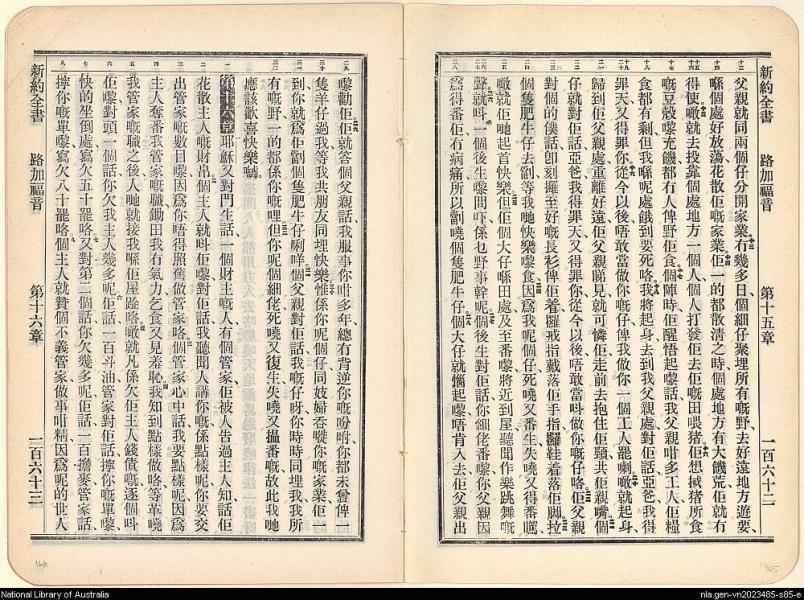 新約全書 路加福音 第十五章 一百六十二
父親就同兩個仔分開家業有幾多日個細仔聚埋所有嘅野去好遠地方遊耍
喺個處好放蕩花散佢嘅家業佢一的都散清之時個處地方有大饑荒佢就有
得使噉就去投靠個處地方一個人個人打發佢去佢嘅田喂豬佢想搣豬所食
嘅豆殼嚟充饑都有人俾野佢食個陣時佢醒悟起嚟話我父親咁多工人佢糧
食都有剩但我喺呢處餓到要死咯我將起身去到我父親處對佢話亞爸我得
罪天又得罪你從今以後唔敢當做你嘅仔俾我做你一個工人罷喇噉就起身
歸到佢父親處重離好遠佢父親睇見就可憐佢走前去抱住佢頸共佢親嘴個
仔就對佢話亞爸我得罪天又得罪你從今以後唔敢當呌做你嘅仔咯佢父親
對個的僕話卽刻攞至好嘅長衫俾佢着羅戒指戴落佢手指攞鞋着落佢脚拉
個隻肥牛仔去劏等我哋快樂嚟食因爲我呢個仔死嘵又番生失嘵又得番嚟
噉就佢哋起首快樂但佢個大仔喺田處及至番嚟將近到屋聽聞作樂跳舞嘅
聲就呌一個後生嚟問吓係乜野事幹呢個後生對佢話你細佬番嚟你父親因
爲得番佢有病痛所以劏嘵個隻肥牛仔個大仔就惱起嚟唔肯入去佢父親出
嚟勸佢佢就答個父親話我服事你咁多年總冇背逆你嘅吩咐你都未曾俾一
隻羊仔過我等我共朋友同埋快樂惟係你呢個仔同妓婦吞嘥你家業佢一
到你就爲佢劏個隻肥牛仔唎咩個父親對佢話我嘅仔呀你時時同埋我我所
有嘅野一的都係你嘅哩但你呢個細佬死嘵又復生失嘵又搵番嘅故此我哋
應該歡喜快樂喊
第十六章耶穌又對門生話一個財主嘅人有個管家佢被人告過主人知話佢
花散主人嘅財出個主人就呌佢嚟對佢話我聽聞人講你嘅係點樣呢你要交
出管家嘅數目嚟因爲你唔得照舊做管家咯個管家心中話我要點樣呢因爲
主人奪番我管家嘅職鋤田我冇氣力乞食又見羞恥我知到點樣做咯等革嘵
我管家嘅職之後人哋就接我喺佢屋跧咯噉就凡係欠佢主人錢債嘅逐個呌
佢嚟對頭一個話你欠我主人幾多呢佢話一百斗油管家對佢話擰你嘅單嚟
快的坐倒處寫欠五十罷咯又對第二個話你欠幾多呢佢話一百擔麥管家話
擰你嘅單嚟寫欠八十罷咯個主人就贊個不義管家做事咁精因爲呢的世人
新約全書 路加福音 第十六章 一百六十三
National Library of Australia
nla.gen-vn2023485-s85-e